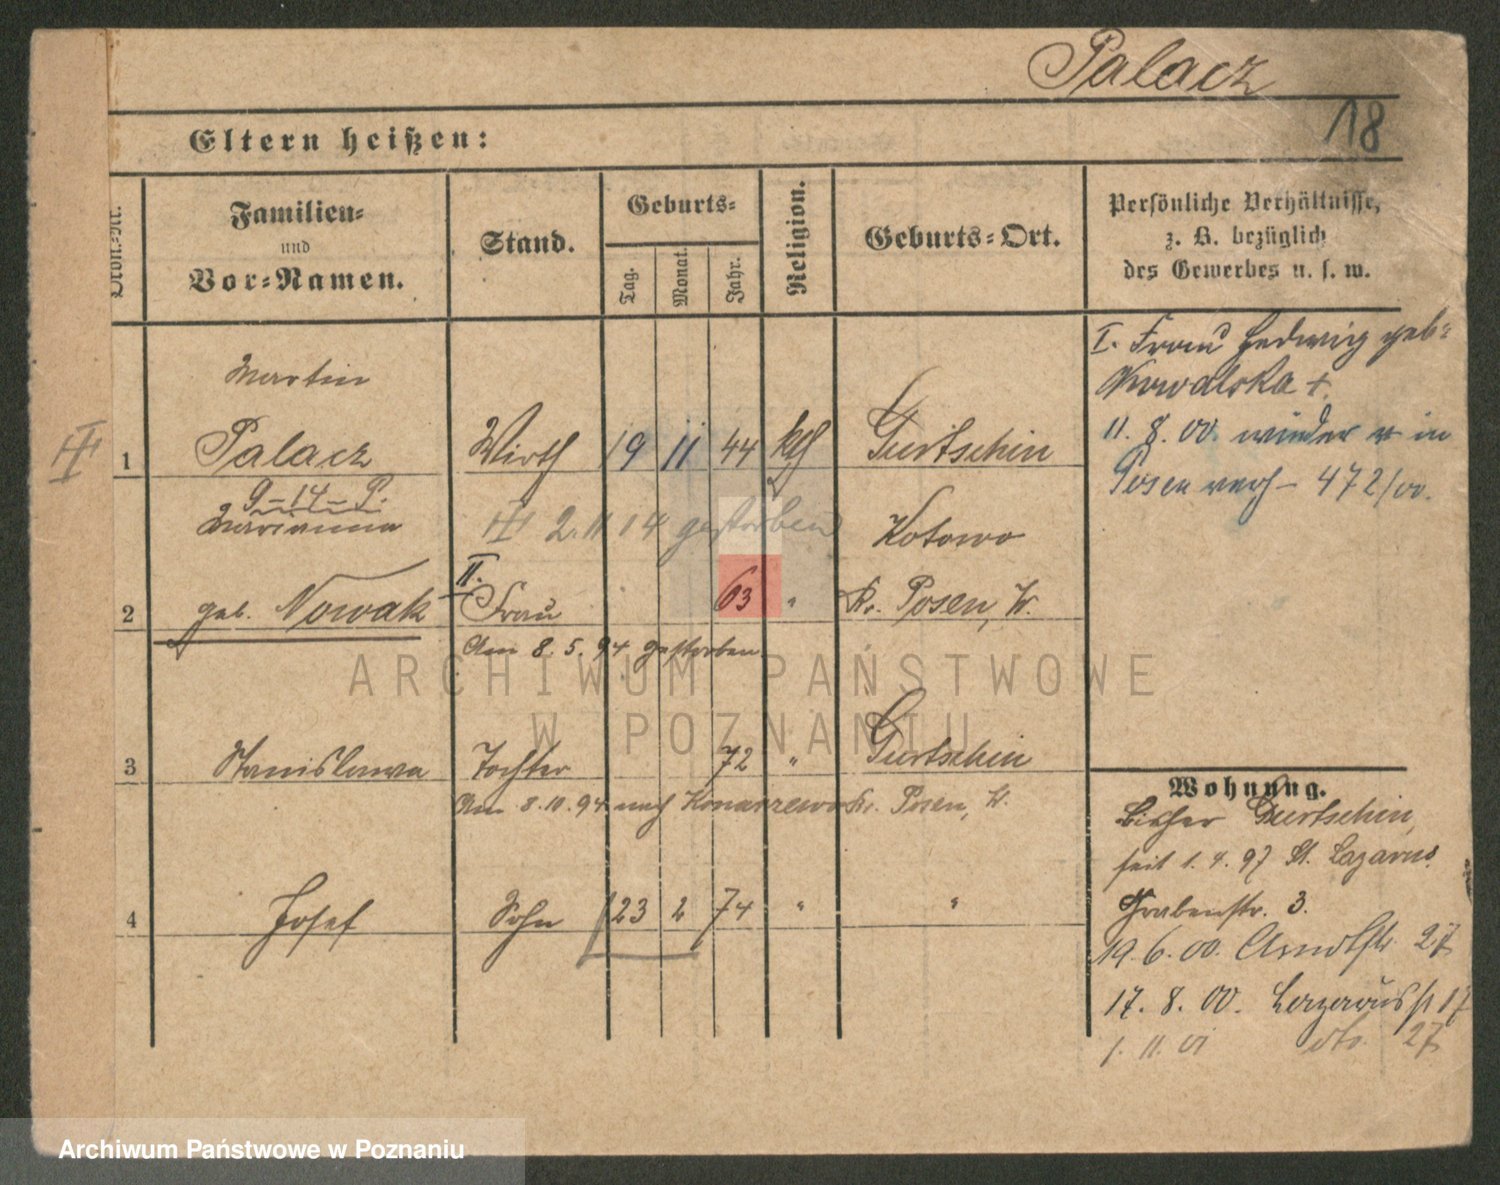 Palacz
18
Eltern heißen:
Ordn.-Nr.
Familien-
und
Vor-Namen.
Stand.
Geburts-
Tag.
Monat.
Jahr.
Religion.
Geburts-Ort.
Persönliche Verhältnisse,
z. B. bezüglich
des Gewerbes u. s. w.
I. Frau Hedwig geb:
Nowalska +.
11. 8. 00. wieder in
Posen verh - 472/00.
Martin
1 Palacz Wirth 19 11 44 kth Gurtschin
9-14-P.
Marianna
2. 11 14 gestorben
Kotowo
2 geb. Nowak II. Frau 63 " Kr. Posen, W.
Am 8. 5. 94 gestorben.
3 Stanislawa Tochter 72 " Gurtschin
Am 8.10.94 nach Konarzewo Kr. Posen, W.
4 Josef Sohn 23 2 74 " "
Wohnung.
bisher Gurtschin,
seit 1. 4. 97 St. Lazarus
Grabenstr. 3.
19. 6. 00. Arndtstr. 27
17. 8. 00. Lazarusst 17
1. 11. 01 dto. 27
ARCHIWUM PAŃSTWOWE
W POZNANIU
Archiwum Państwowe w Poznaniu